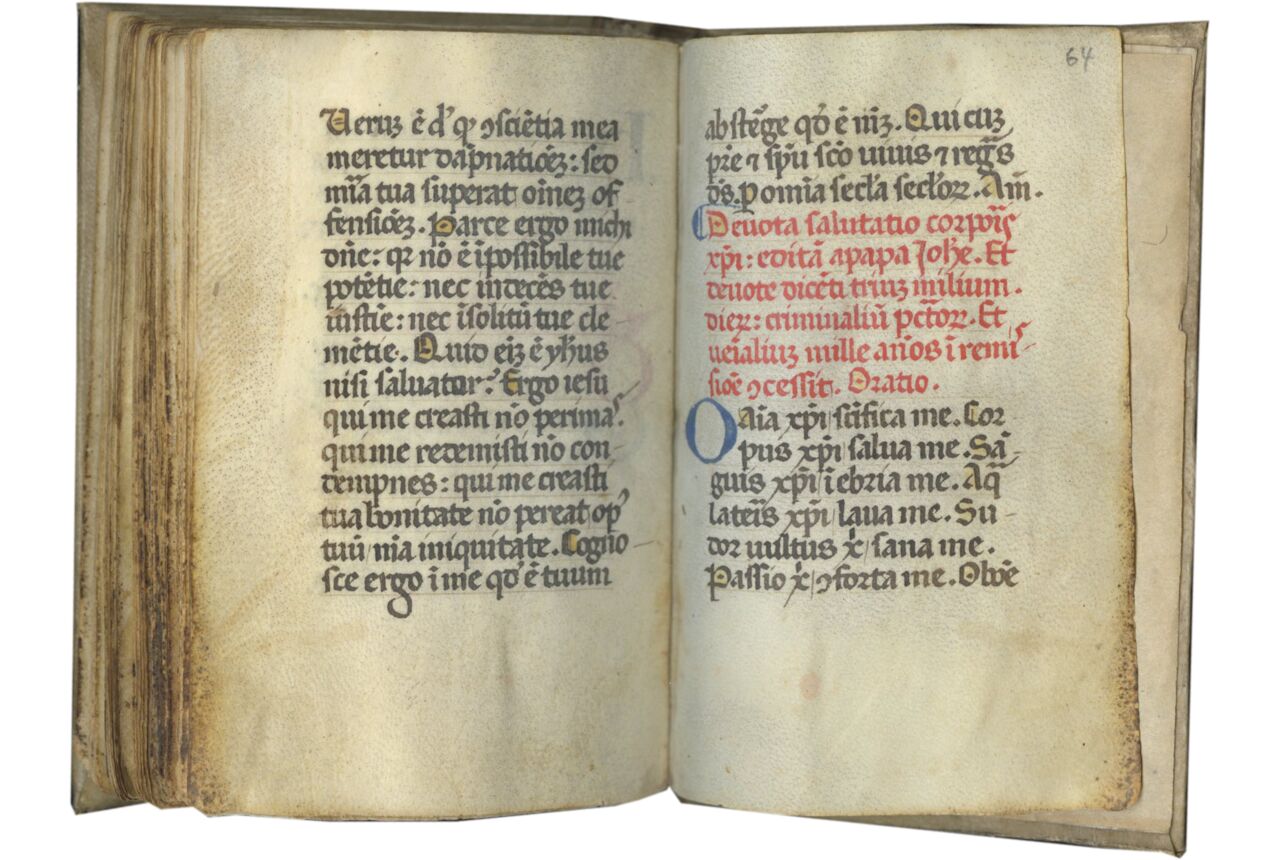 Ueruʒ ē d' qꝫ ↄsciētia mea
meretur dāpnationēʒ: sed
mīa tua suꝑat oīneʒ of
fensionēʒ. Parce ergo michi
dn̄e: qꝛ nō ē īpossibile tue
potētie: nec indecēs tue
iustīe: nec īsolitū tue cle
mētie. Quid eīʒ ē yhūs
nisi saluator? Ergo iesu
qui me creasti nō perimas.
qui me redemisti nō con-
tempnes: qui me creasti
tua bonitate nō pereat op'
tuū mīa iniquitate. Cogno-
sce ergo ī me qd' ē tuum
64
absterge qd' ē mīʒ. Qui cuʒ
pr̄e ⁊ sp̄u sc̄o uiuis ⁊ regn̄s
ds̄. p omīa secl'a secl'oꝝ. Am̄.
Deuota salutatio corporis
xp̄i: editā a papa Joh̄e. Et
deuote dicēti triuʒ milium.
dierꝝ: criminaliū pct̄orꝝ. Et
uēialiuʒ mille an̄os ī remis-
siōē ↄcessit. Oratio.
O Aīa xp̄i sc̄ifica me. Cor
pus xp̄i salua me. Sā-
guis xp̄i īebria me. Aq̄
lateris xp̄i laua me. Su-
dor uultus x̄ sana me.
Passio x̄ ↄforta me. O bōe